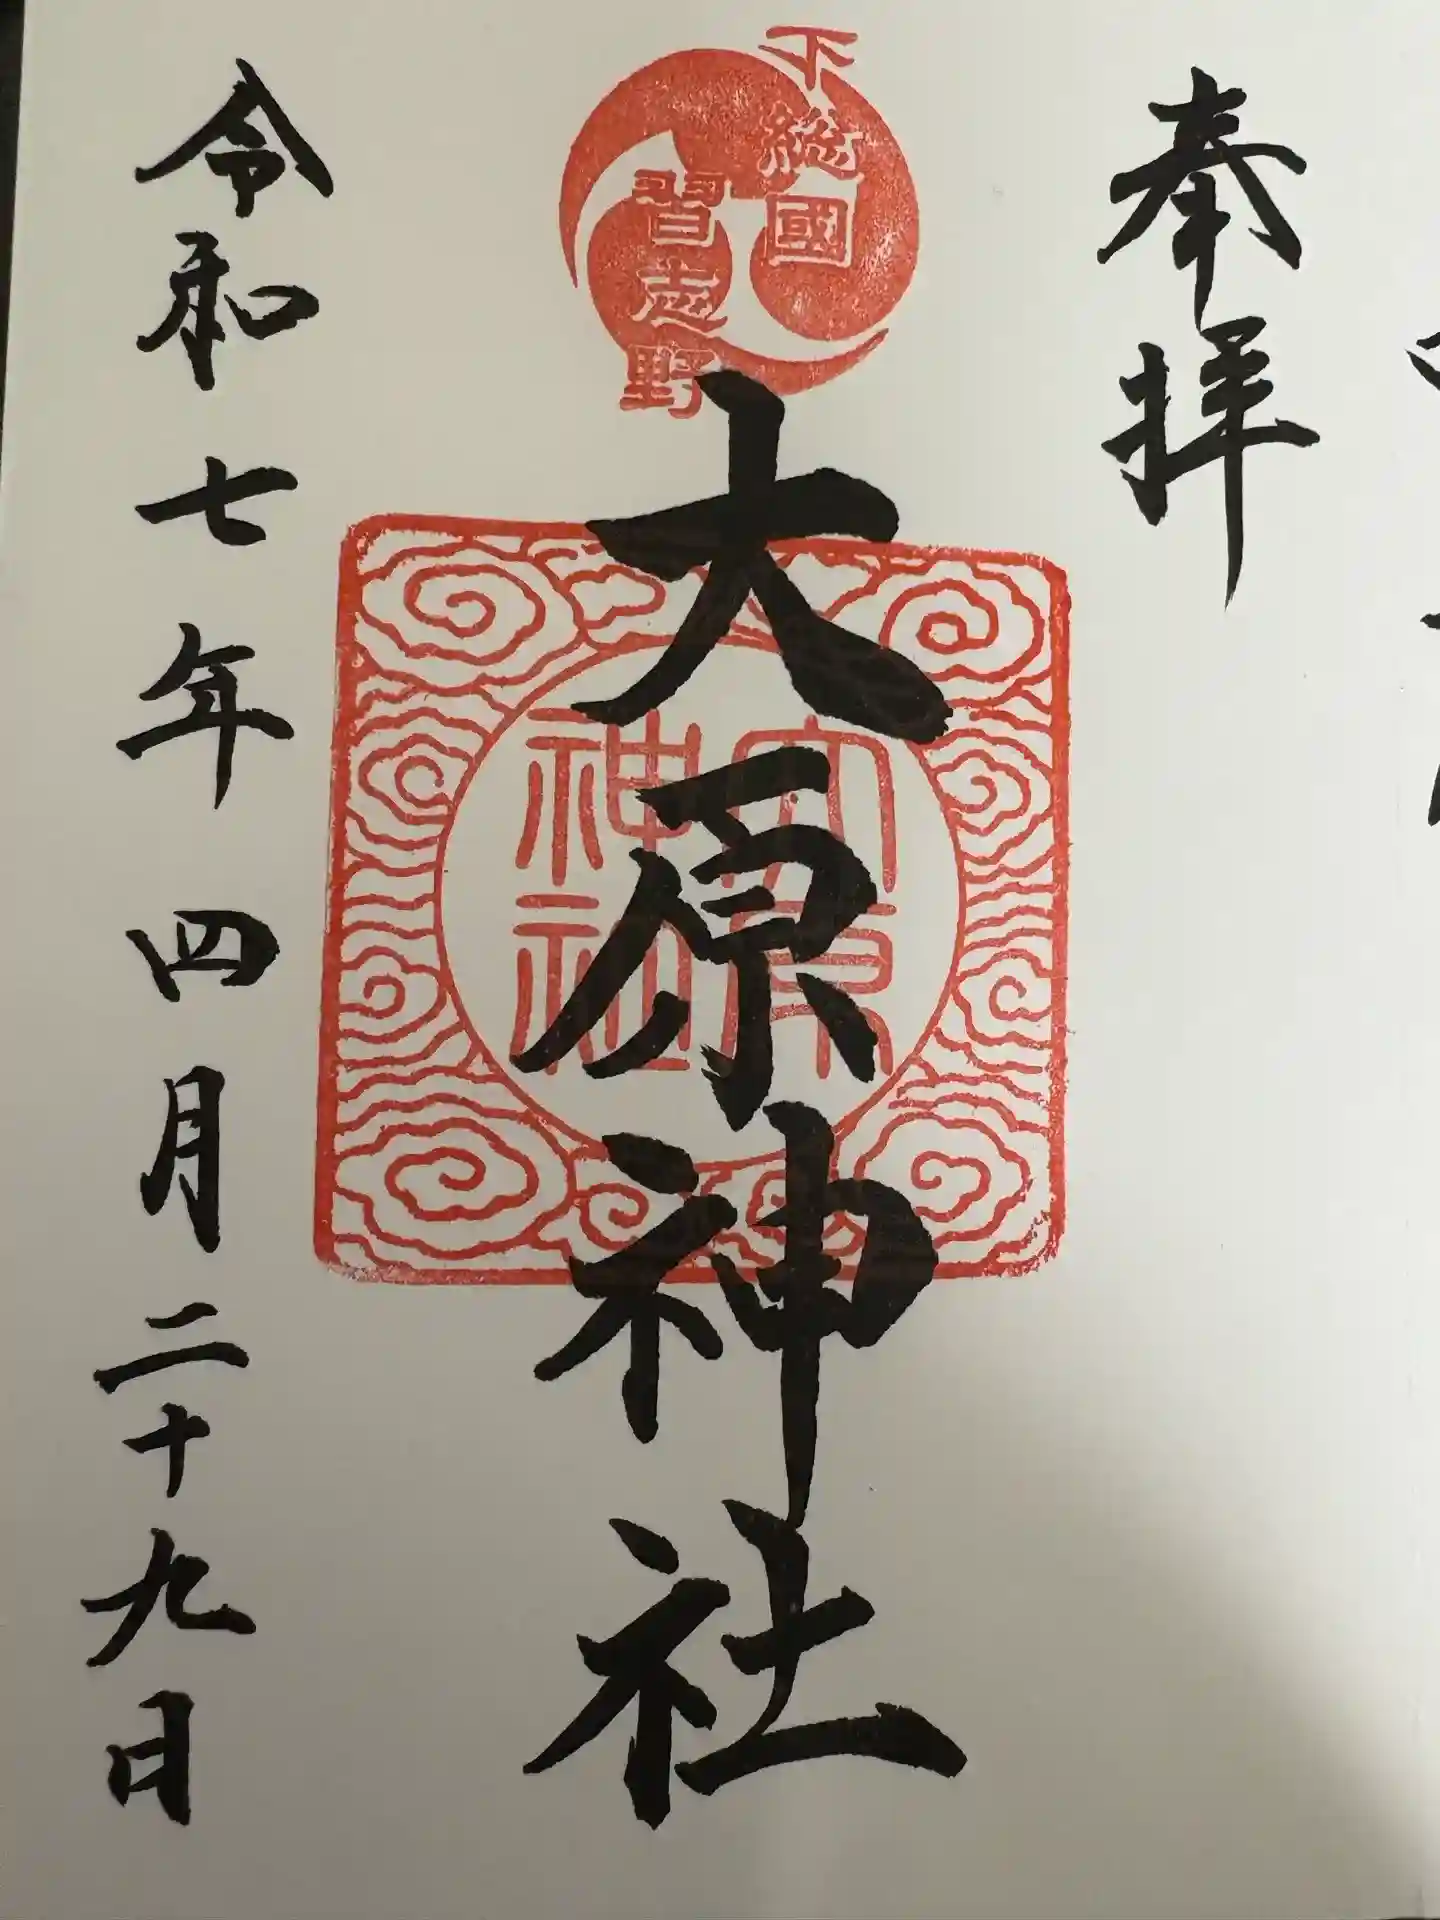 奉拝
下總國
習志野
大原神社
大原
神社
令和七年四月二十九日